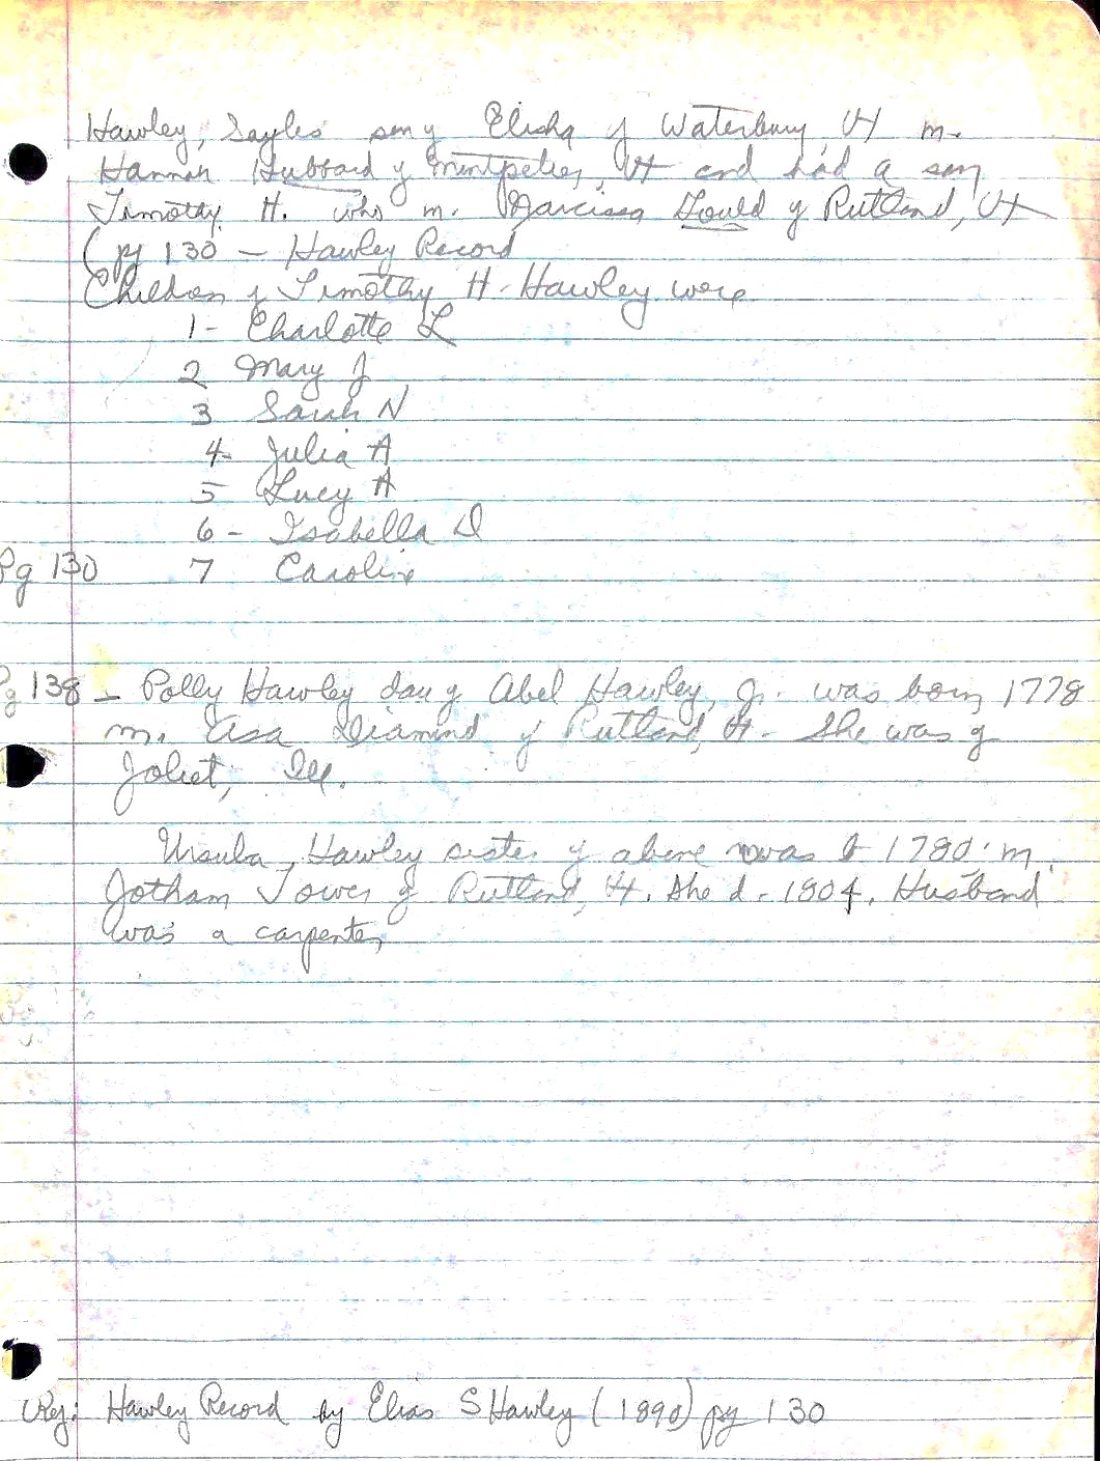 Hawley, Sayles son of Elisha of Waterbury, Vt m.
Hannah Hubbard of Montpelier, Vt and had a son
Timothy H. who m. Narcissa Gould of Rutland, Vt
(pg 130 - Hawley Record
Children of Timothy H. Hawley were
1- Charlotte L
2 Mary J
3 Sarah N
4- Julia A
5 Lucy A
6- Isabella D
Pg 130 7 Caroline
Pg 138 - Polly Hawley dau of Abel Hawley, Jr. was born 1778
m. Asa Diamond of Rutland, Vt - She was of
Joliet, Ill.
Ursula Hawley sister of above was b 1780. m.
Jotham Tower of Rutland, Vt. She d - 1804. Husband
was a carpenter
Ref: Hawley Record by Elias S Hawley (1890) pg 130